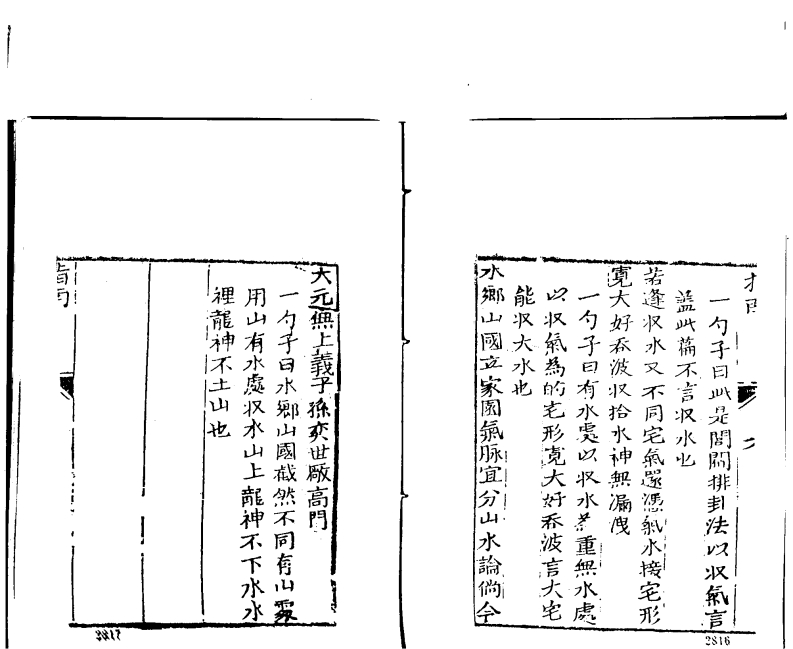 一勺子曰此是閭閻排卦法以収氣言
盖此篇不言収水也
若逢収水又不同宅氣還憑氣水接宅形
寬大好吞波収拾水神無漏洩
一勺子曰有水處以収水為重無水處
以収氣為的宅形寬大好吞波言大宅
能収大水也
水鄉山國立家園氣脉宜分山水論倘令
2816
大元無上義子孫奕世厰高門
一勺子曰水鄉山國截然不同有山處
用山有水處収水山上龍神不下水水
裡龍神不土山也
指南
2817